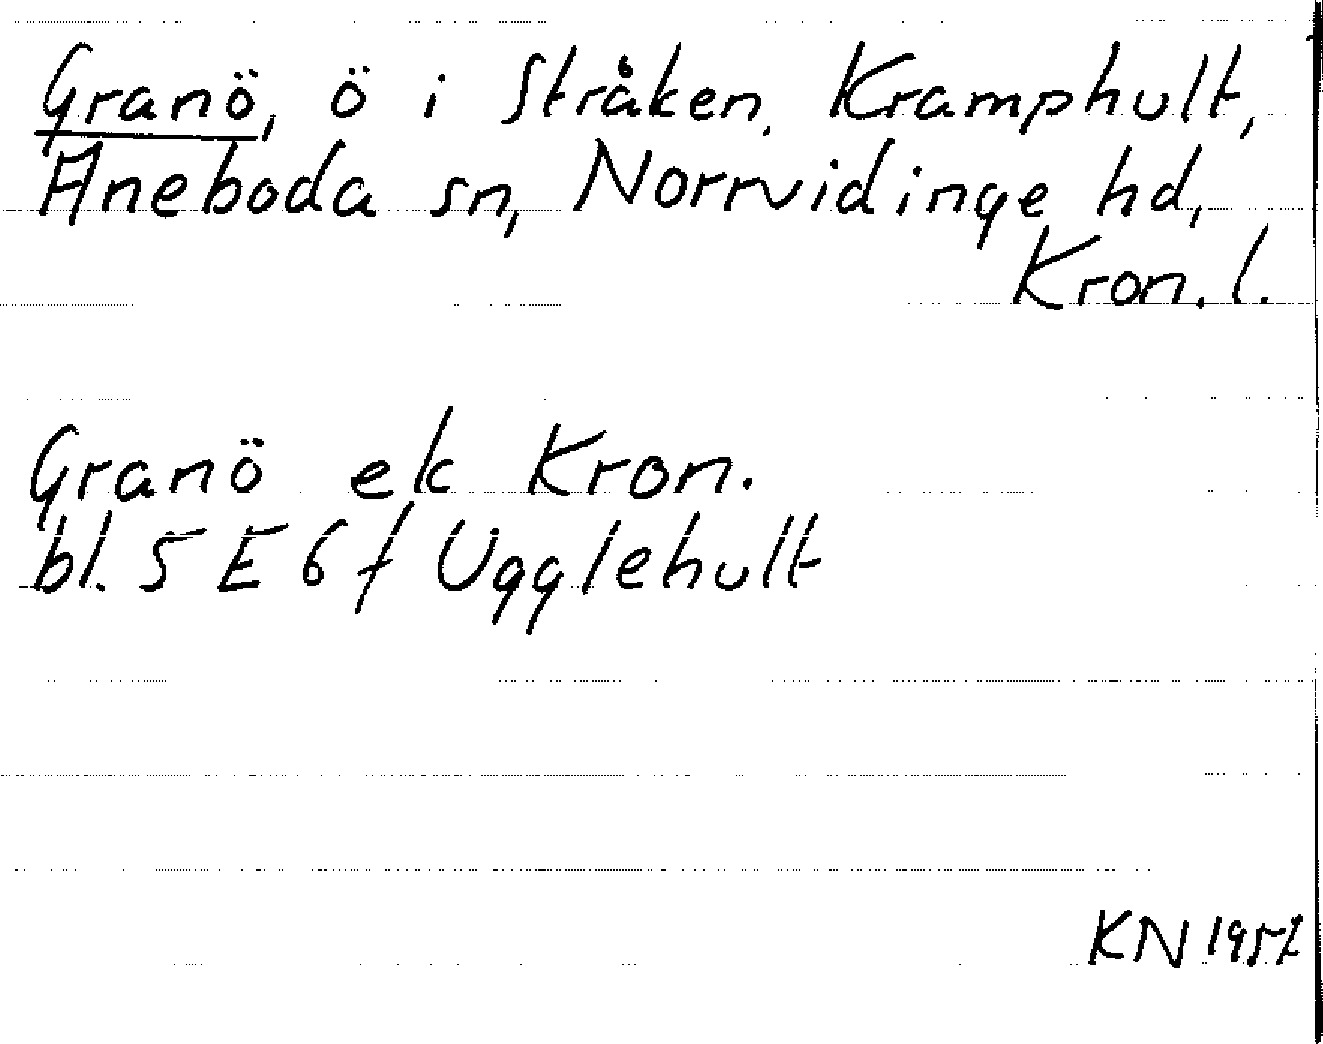 Granö, ö i Stråken, Kramphult,
Aneboda sn, Norrvidinge hd,
Kron. l.
Granö ek Kron.
bl. 5 E 6 f Ugglehult
KN 1957